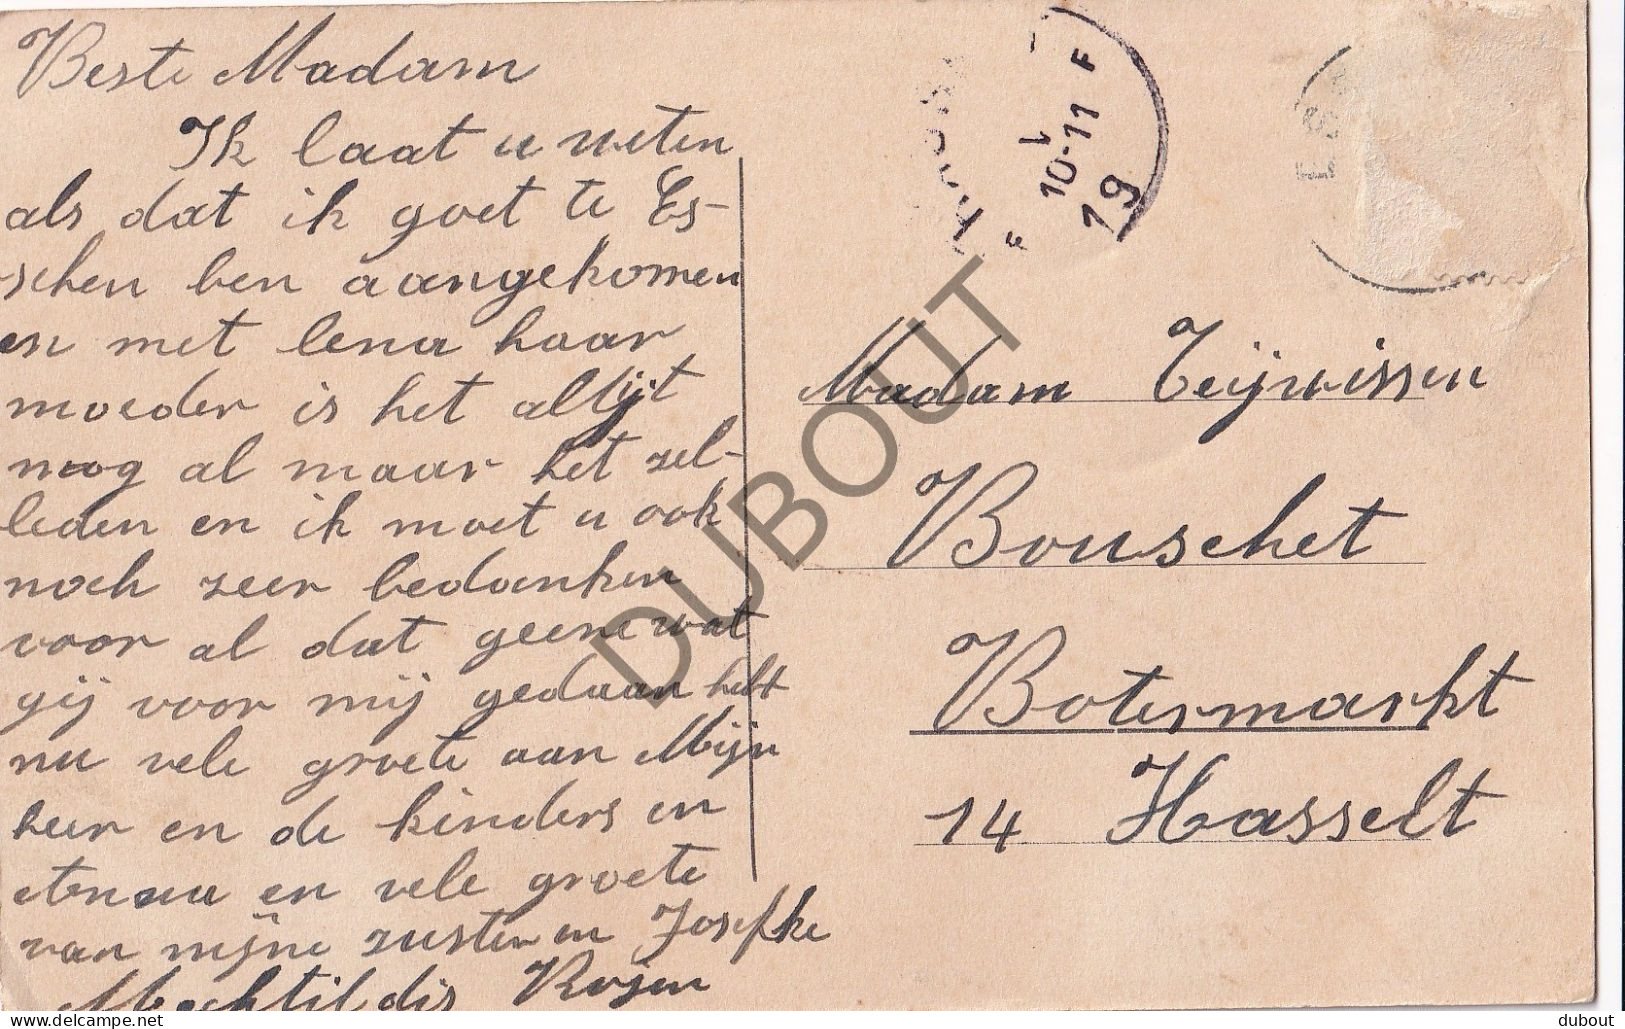 Beste Madam
Ik laat u weten
als dat ik goet te Es-
schen ben aangekomen
en met lena haar
moeder is het altijt
nog al maar het zel-
leden en ik moet u ook
noch zeer bedanken
voor al dat geene wat
gij voor mij gedaan heft
nu vele groete aan Mijn
heer en de kinders en
en vele groete
van mijne zuster en Josefke
Mechtildis Rosen
10-11
19
F
F
Madam Teijwissen
Bouschet
Botermarkt
14 Hasselt
DUBOUT
delcampe.net
dubout